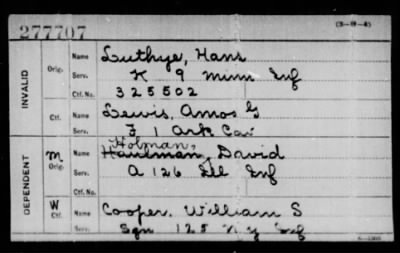 277707
(3-1811-8)
INVALID
Orig.
Name Luthye, Hans
Serv. K 9 Minn Inf
Ctf. No. 325502
Ctf.
Name Lewis, Amos G
Serv. F 1 Ark Cav
DEPENDENT
M Orig.
Holman,
Name Haulman, David
Serv. A 126 Ill Inf
Ctf. No.
W Ctf.
Name Cooper, William S
Serv. Sgn 125 N Y Inf